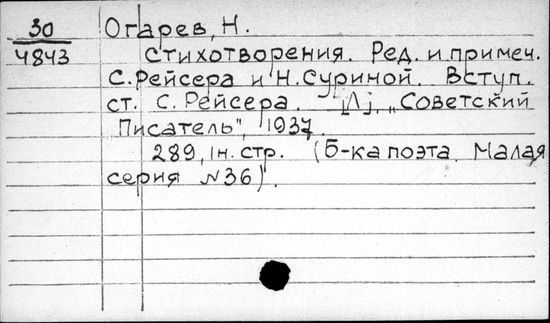 30
4843
Огарев, Н.
Стихотворения. Ред. и примеч.
С. Рейсера и Н. Суриной. Вступ.
ст. С. Рейсера. [Л], „Советский
Писатель", 1937.
289, 1н. стр. (Б-ка поэта. Малая
серия №36).